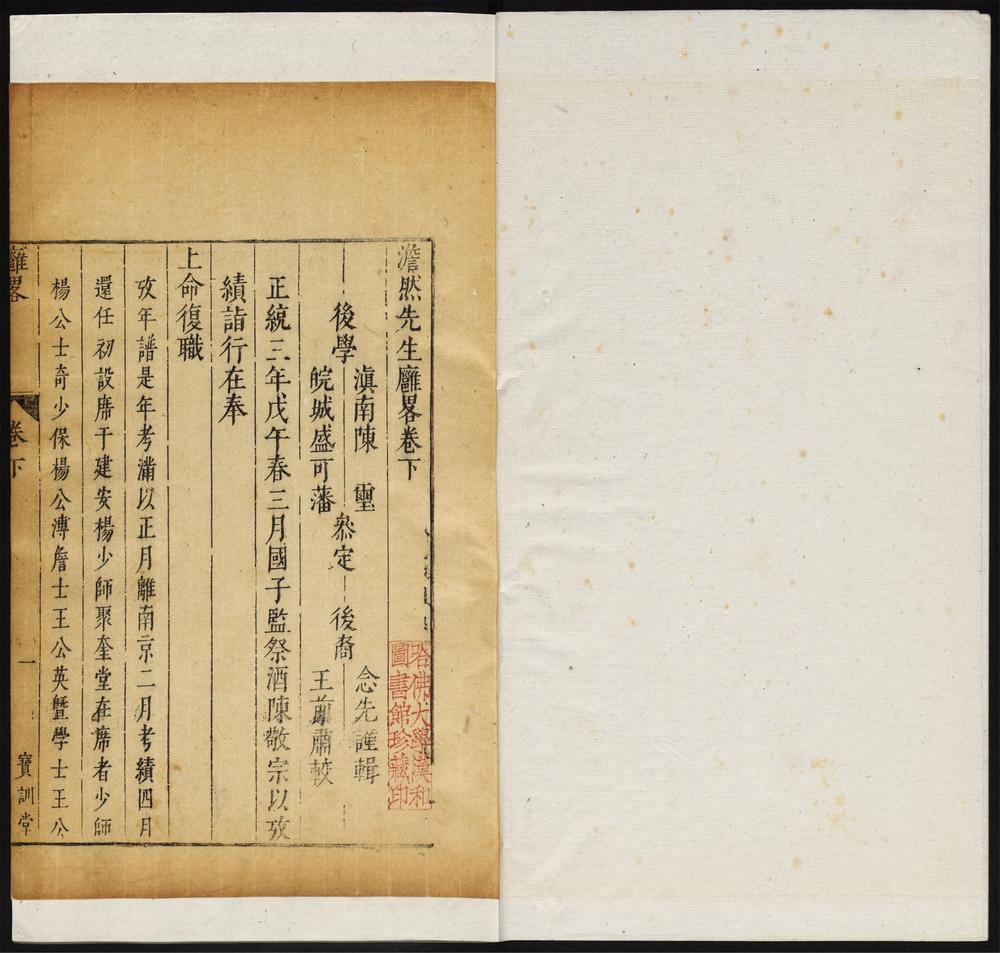 澹然先生廱畧卷下
後學
滇南陳　璽
皖城盛可藩
叅定
後裔
念先謹輯
王前肅較
正統三年戊午春三月國子監祭酒陳敬宗以攷
績詣行在奉
上命復職
攷年譜是年考滿以正月離南京二月考績四月
還任初設席于建安楊少師聚奎堂在席者少師
楊公士奇少保楊公溥詹士王公英曁學士王公
廱畧
卷下
一
寶訓堂
哈佛大學漢和
圖書館珍藏印